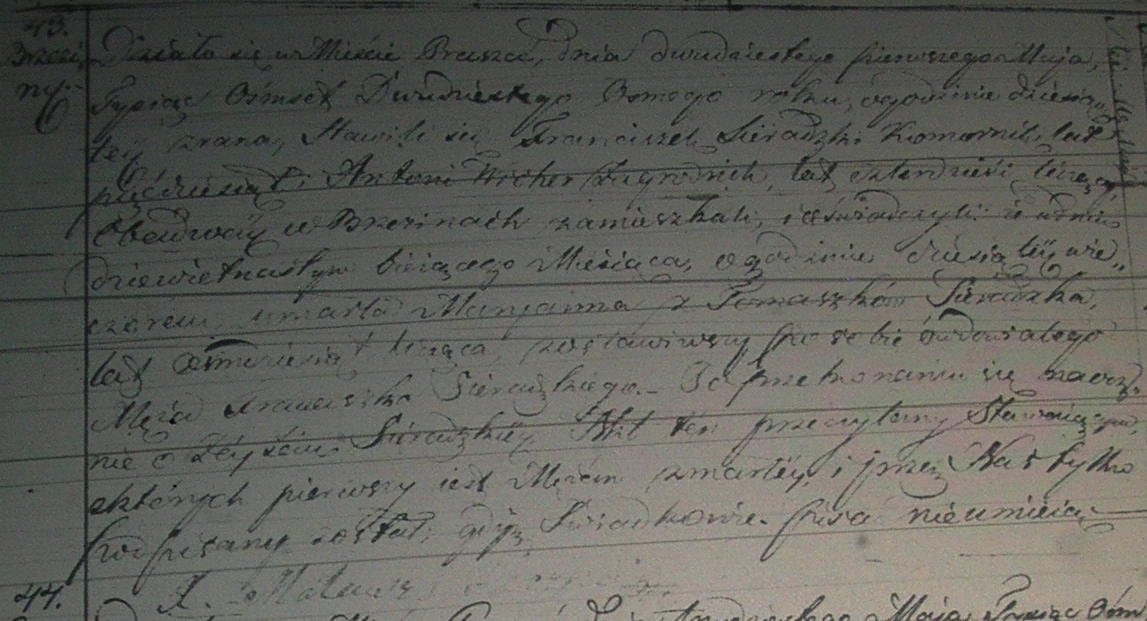 43. Działo się w Mieście Praszce, dnia dwudziestego pierwszego Maja,
Brzezi= Tysiąc Ośmset Dwudziestego Osmego roku, o godzinie dziesią=
ny. tey zrana, Stawili się Franciszek Sieradzki Komornik, lat
pięćdziesiąt, Antoni Zagrodnik, lat czterdzieści liczący
Obadwaÿ w Brzezinach zamieszkali, i oświadczyli: iż w dniu
dziewiętnastym bieżącego Miesiąca, o godzinie dziesiąteÿ wie„
czorem, umarła Maryanna z Tomaszków Sieradzka,
lat liczącą, zostawiwszy po sobie owdowiałego
Męża Franciszka Sieradzkiego. – Po przekonaniu się naocz=
nie o Zeyściu Sieradzkieÿ, Akt ten przeczytany Stawaiącym,
z których pierwszy iest Mężem zmarłéy, i przez Nas tylko
podpisany został, gdyż Świadkowie pisać nieumieią.–
X. Mateusz
44. Maja Tysiąc Ośm